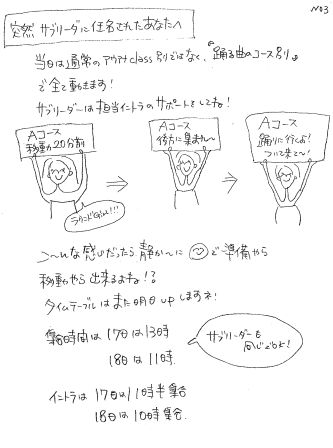 NO3
突然 サブリーダーに任名されたあなたへ
当日は通常のアウアウclass別ではなく、『踊る曲のコース別』
で全て動きます!
サブリーダーは担当イントラのサポートをしてネ!
Aコース
移動20分前
Aコース
後方に集まれ〜
Aコース
踊りに行くよ!
ついて来て〜!
⇒
⇒
こ〜んな感じだったら静か〜に で準備やら
移動やら出来るよネ!?
タイムテーブルはまた明日upしますネ!
集合時間は 17日は13時
18日は11時.
サブリーダーも
同じだよ!
イントラは 17日は11時半集合
18日は10時集合.